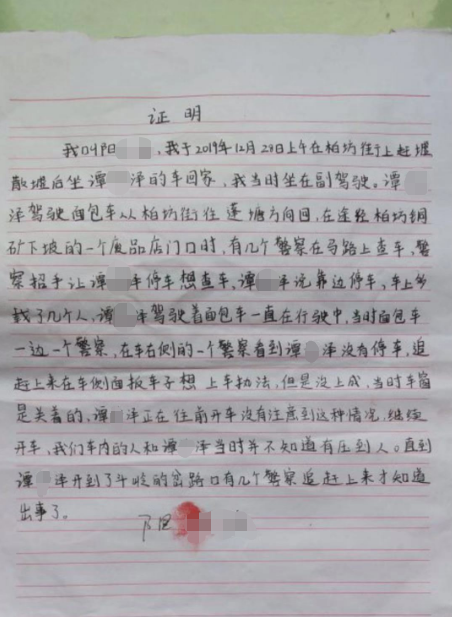 证明
我叫阳 ，我于2019年12月29日上午在柏坊街上赶堰
散堰后坐谭 泽的车回家，我当时坐在副驾驶。谭
泽驾驶面包车从柏坊街往蓬塘方向回，在途经柏坊铜
矿下坡的一个废品店门口时，有几个警察在马路上查车，警
察招手让谭 泽停车想查车，谭 泽说靠边停车，车上乡
了几个人，谭 泽驾驶着面包车一直在行驶中，当时面包车
一边一个警察，在车右侧的一个警察看到谭 泽没有停车，追
赶上来在车侧面扳车子想上车执法，但是没上成，当时车窗
是关着的，谭 泽正在往前开车没有注意到这种情况，继续
开车，我们车内的人和谭 泽当时并不知道有压到人。直到
谭 泽开到了斗岭的岔路口有几个警察追赶上来才知道
出事了。